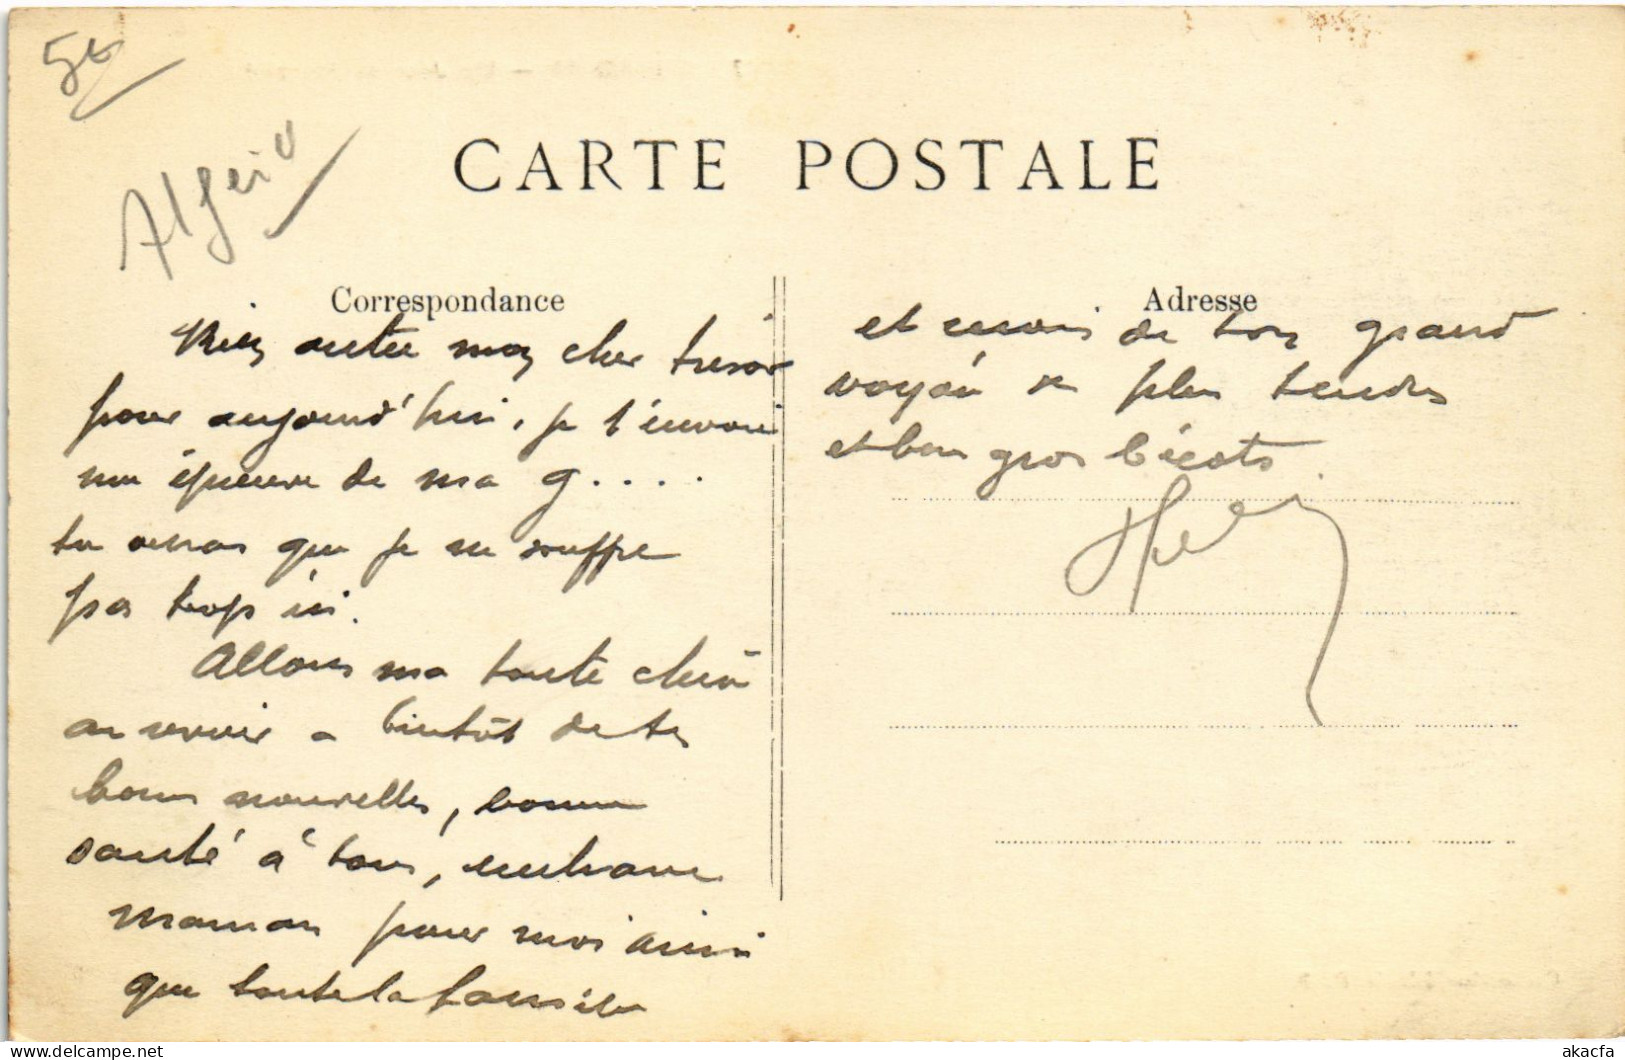 5t
Algérie
CARTE POSTALE
Correspondance
Rien autre mon cher trésor
pour aujourd'hui, je t'envoie
une épreuve de ma g....
tu verras que je ne souffre
pas trop ici.
Allons ma toute chérie
au revoir a bientôt de tes
bonnes nouvelles, bonne
santé à tous, embrasse
maman pour moi ainsi
que toute la famille
Adresse
et reçois de ton grand
les plus tendres
et bons gros bécots.
akacfa